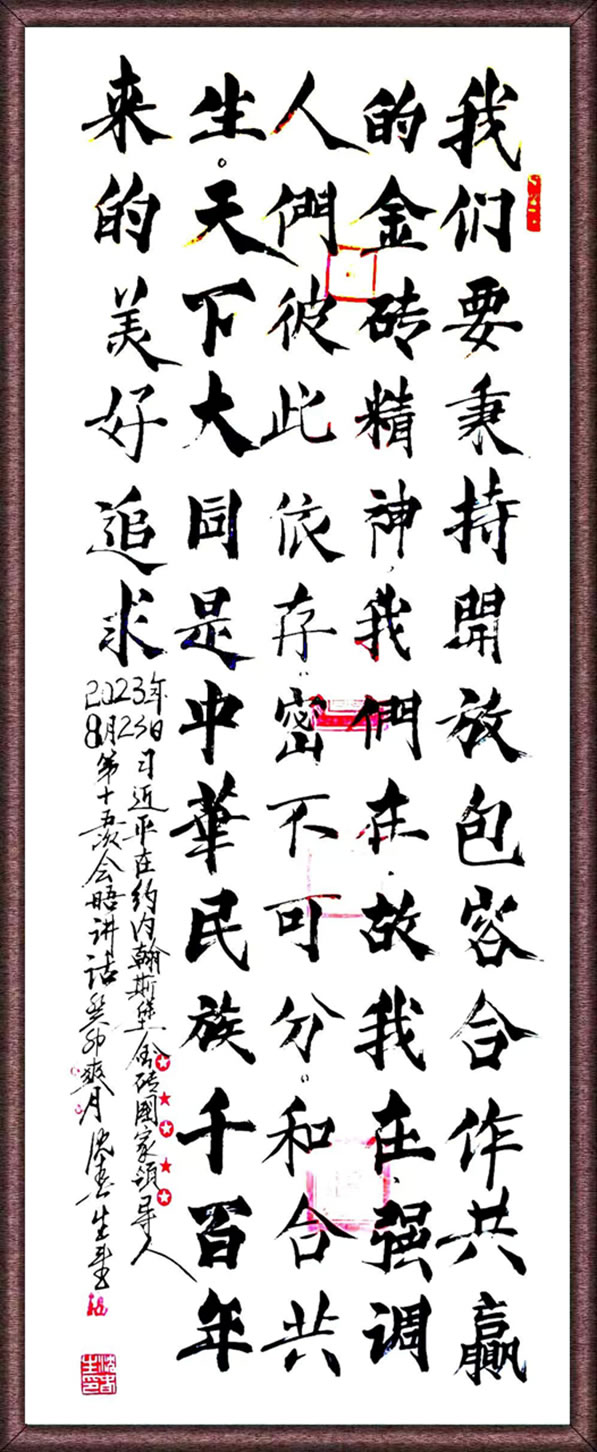 我们要秉持開放包容合作共赢
的金砖精神,我們在,故我在,强调
人們彼此依存,密不可分。和合共
生。天下大同是中華民族千百年
来的美好追求
2023年
8月23日
习近平在约内翰斯堡金砖國家领导人
第十五次会晤讲话癸卯爽月沈生書